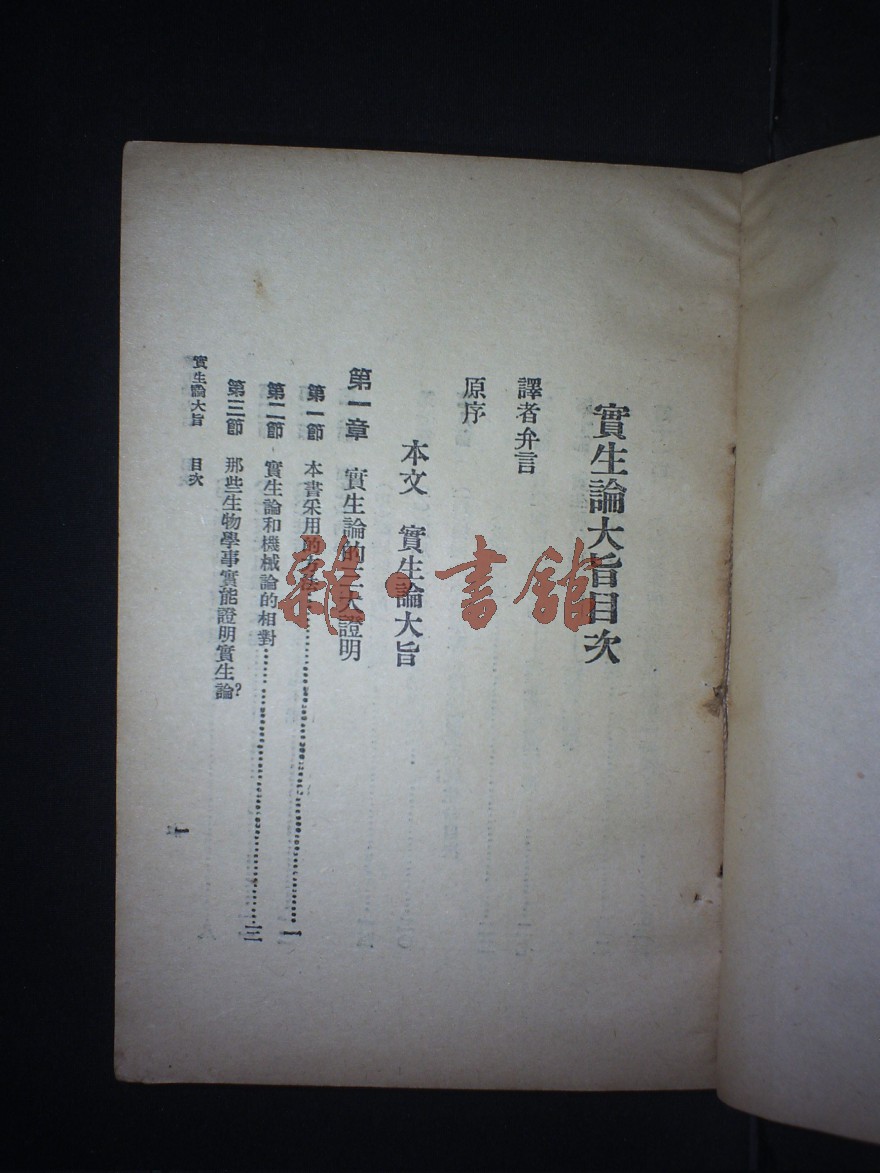 實生論大旨目次
譯者弁言
原序
本文 實生論大旨
第一章 實生論的三大證明
第一節 本書采用的方法 一
第二節 實生論和機械論的相對 三
第三節 那些生物學事實能證明實生論?
實生論大旨 目次
一
雜·書館